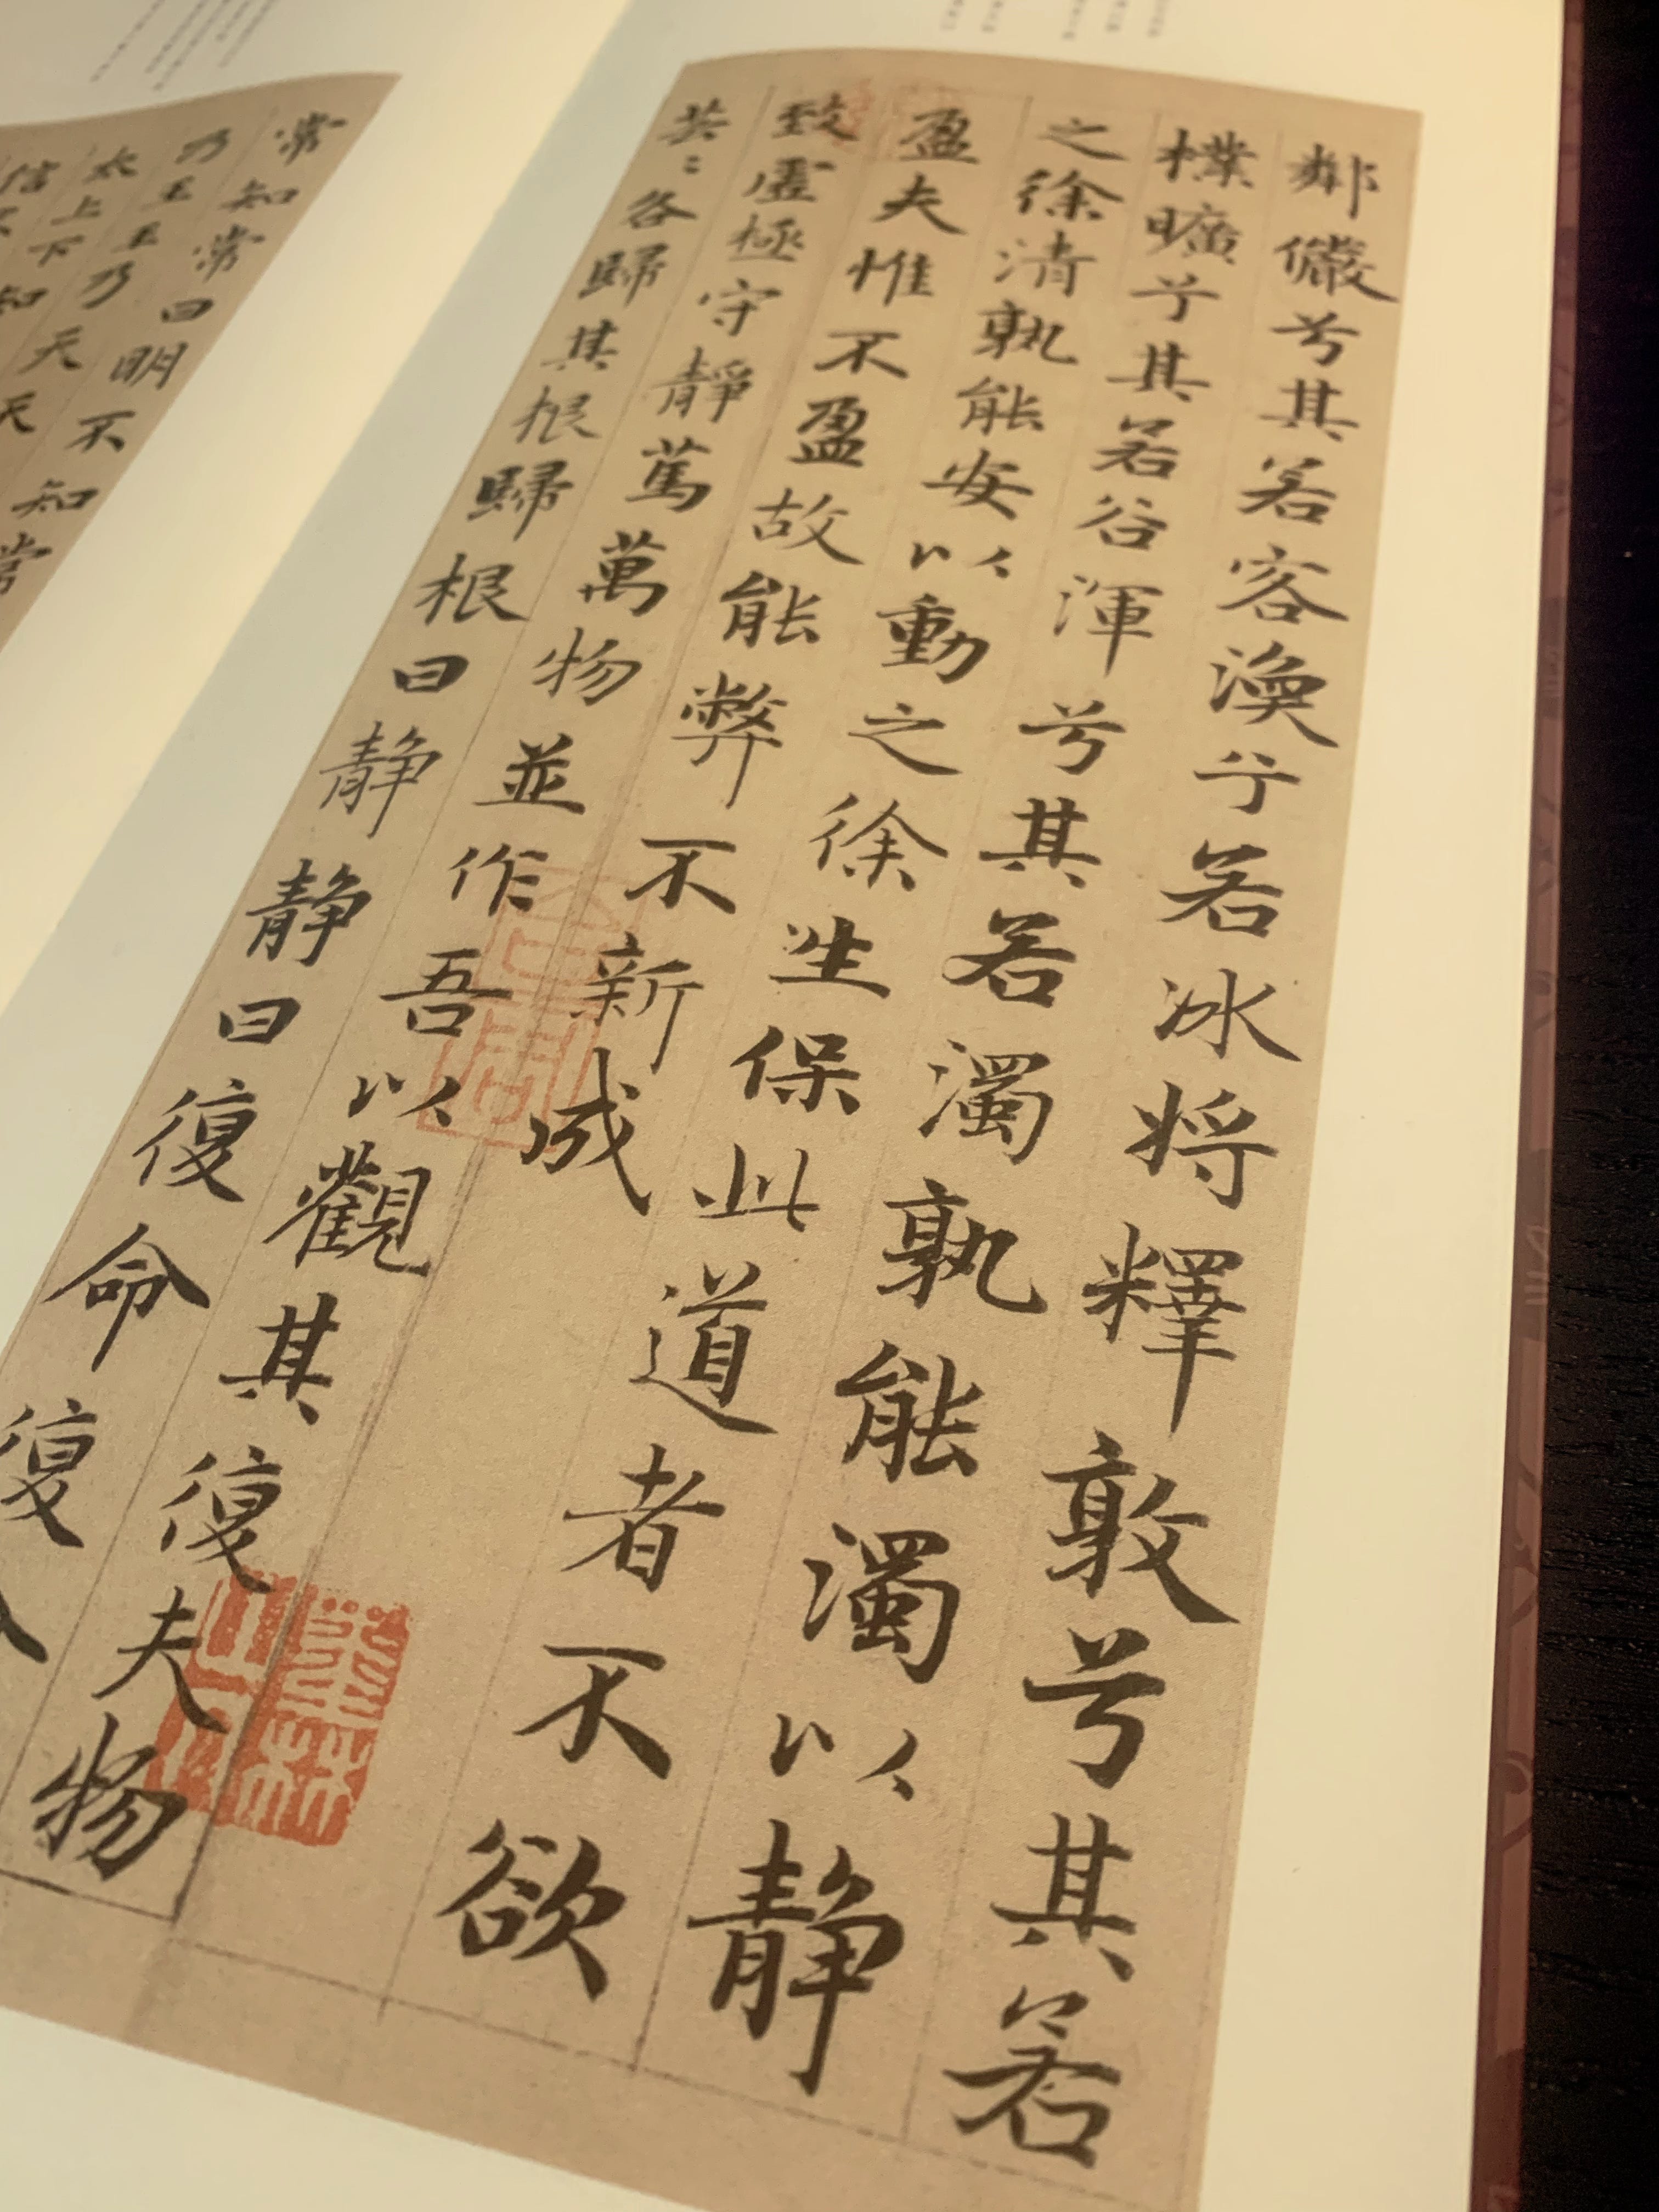 鄰儼兮其若客渙兮若冰將釋敦兮其若
樸曠兮其若谷渾兮其若濁孰能濁以靜
之徐清孰能安以動之徐生保此道者不欲
盈夫惟不盈故能弊不新成
致虛極守靜篤萬物並作吾以觀其復夫物
芸〻各歸其根歸根曰靜靜曰復命復
常知常曰明不知常
乃王王乃天天
太上下知